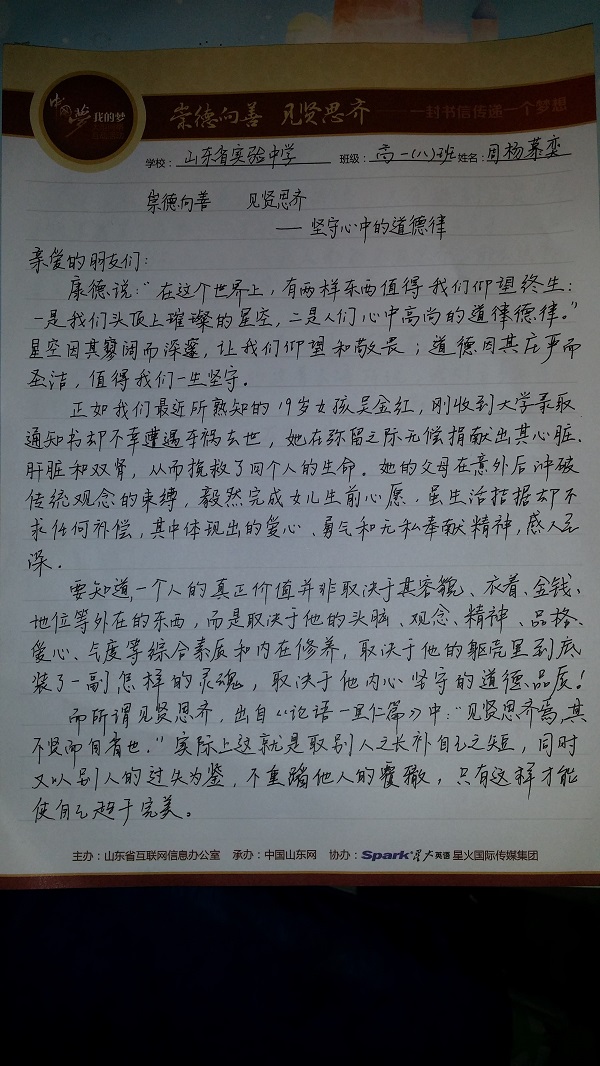 中国梦 我的梦
崇德向善 见贤思齐 ——一封书信传递一个梦想
学校：山东省实验中学 班级：高一(八)班 姓名：周杨慕蛮
崇德向善 见贤思齐
—— 坚守心中的道德律
亲爱的朋友们：
康德说：“在这个世界上，有两样东西值得我们仰望终生：
一是我们头顶上璀璨的星空，二是人们心中高尚的道律德律。”
星空因其寥阔而深邃，让我们仰望和敬畏；道德因其庄严而
圣洁，值得我们一生坚守。
正如我们最近所熟知的19岁女孩吴金红，刚收到大学录取
通知书却不幸遭遇车祸去世，她在弥留之际无偿捐献出其心脏、
肝脏和双肾，从而挽救了四个人的生命。她的父母在意外后冲破
传统观念的束缚，毅然完成女儿生前心愿，虽生活拮据却不
求任何补偿，其中体现出的爱心、勇气和无私奉献精神，感人至
深。
要知道，一个人的真正价值并非取决于其容貌、衣着、金钱、
地位等外在的东西，而是取决于他的头脑、观念、精神、品格、
爱心、气度等综合素质和内在修养，取决于他的躯壳里到底
装了一副怎样的灵魂，取决于他内心坚守的道德品质！
而所谓见贤思齐，出自《论语—里仁篇》中：“见贤思齐焉，其
不贤而自省也。”实际上这就是取别人之长补自己之短，同时
又以别人的过失为鉴，不重蹈他人的覆辙，只有这样才能
使自己趋于完美。
主办：山东省互联网信息办公室 承办：中国山东网 协办：Spark 星火英语 星火国际传媒集团